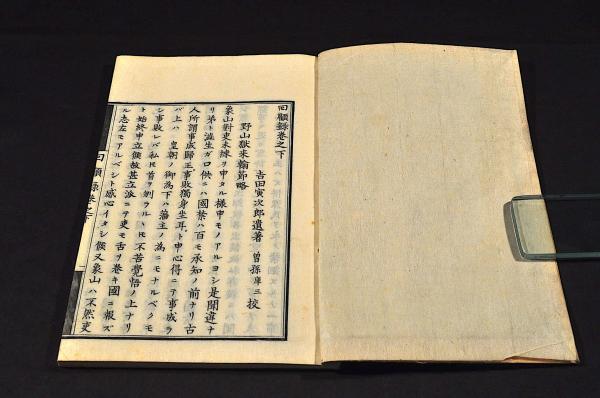 回顧錄卷之下
吉田寅次郎遺著 曽孫庫三校
野山獄来翰節略
象山對吏未練リ申タル様申モノアルヨシ是間違ナ
リ弟ト滋生ガロ供ニハ國禁ハ百モ承知ノ前ナリ古
人所謂事成歸王事敗獨身坐耳ト申心得ニテ事成ラ
バ上ハ 皇朝ノ御為下ハ藩主ノ為ニモナルベクモ
シ事敗レバ私𪜈首ヲ刎ラルヽ𪜈不苦覺悟ノ上ナリ
ト始終申立候故甚立派ニテ吏モ舌ヲ卷キ國ニ報ズ
ル志左モアルベシト感心イタシ候又象山ハ不然吏
回顧錄卷之下